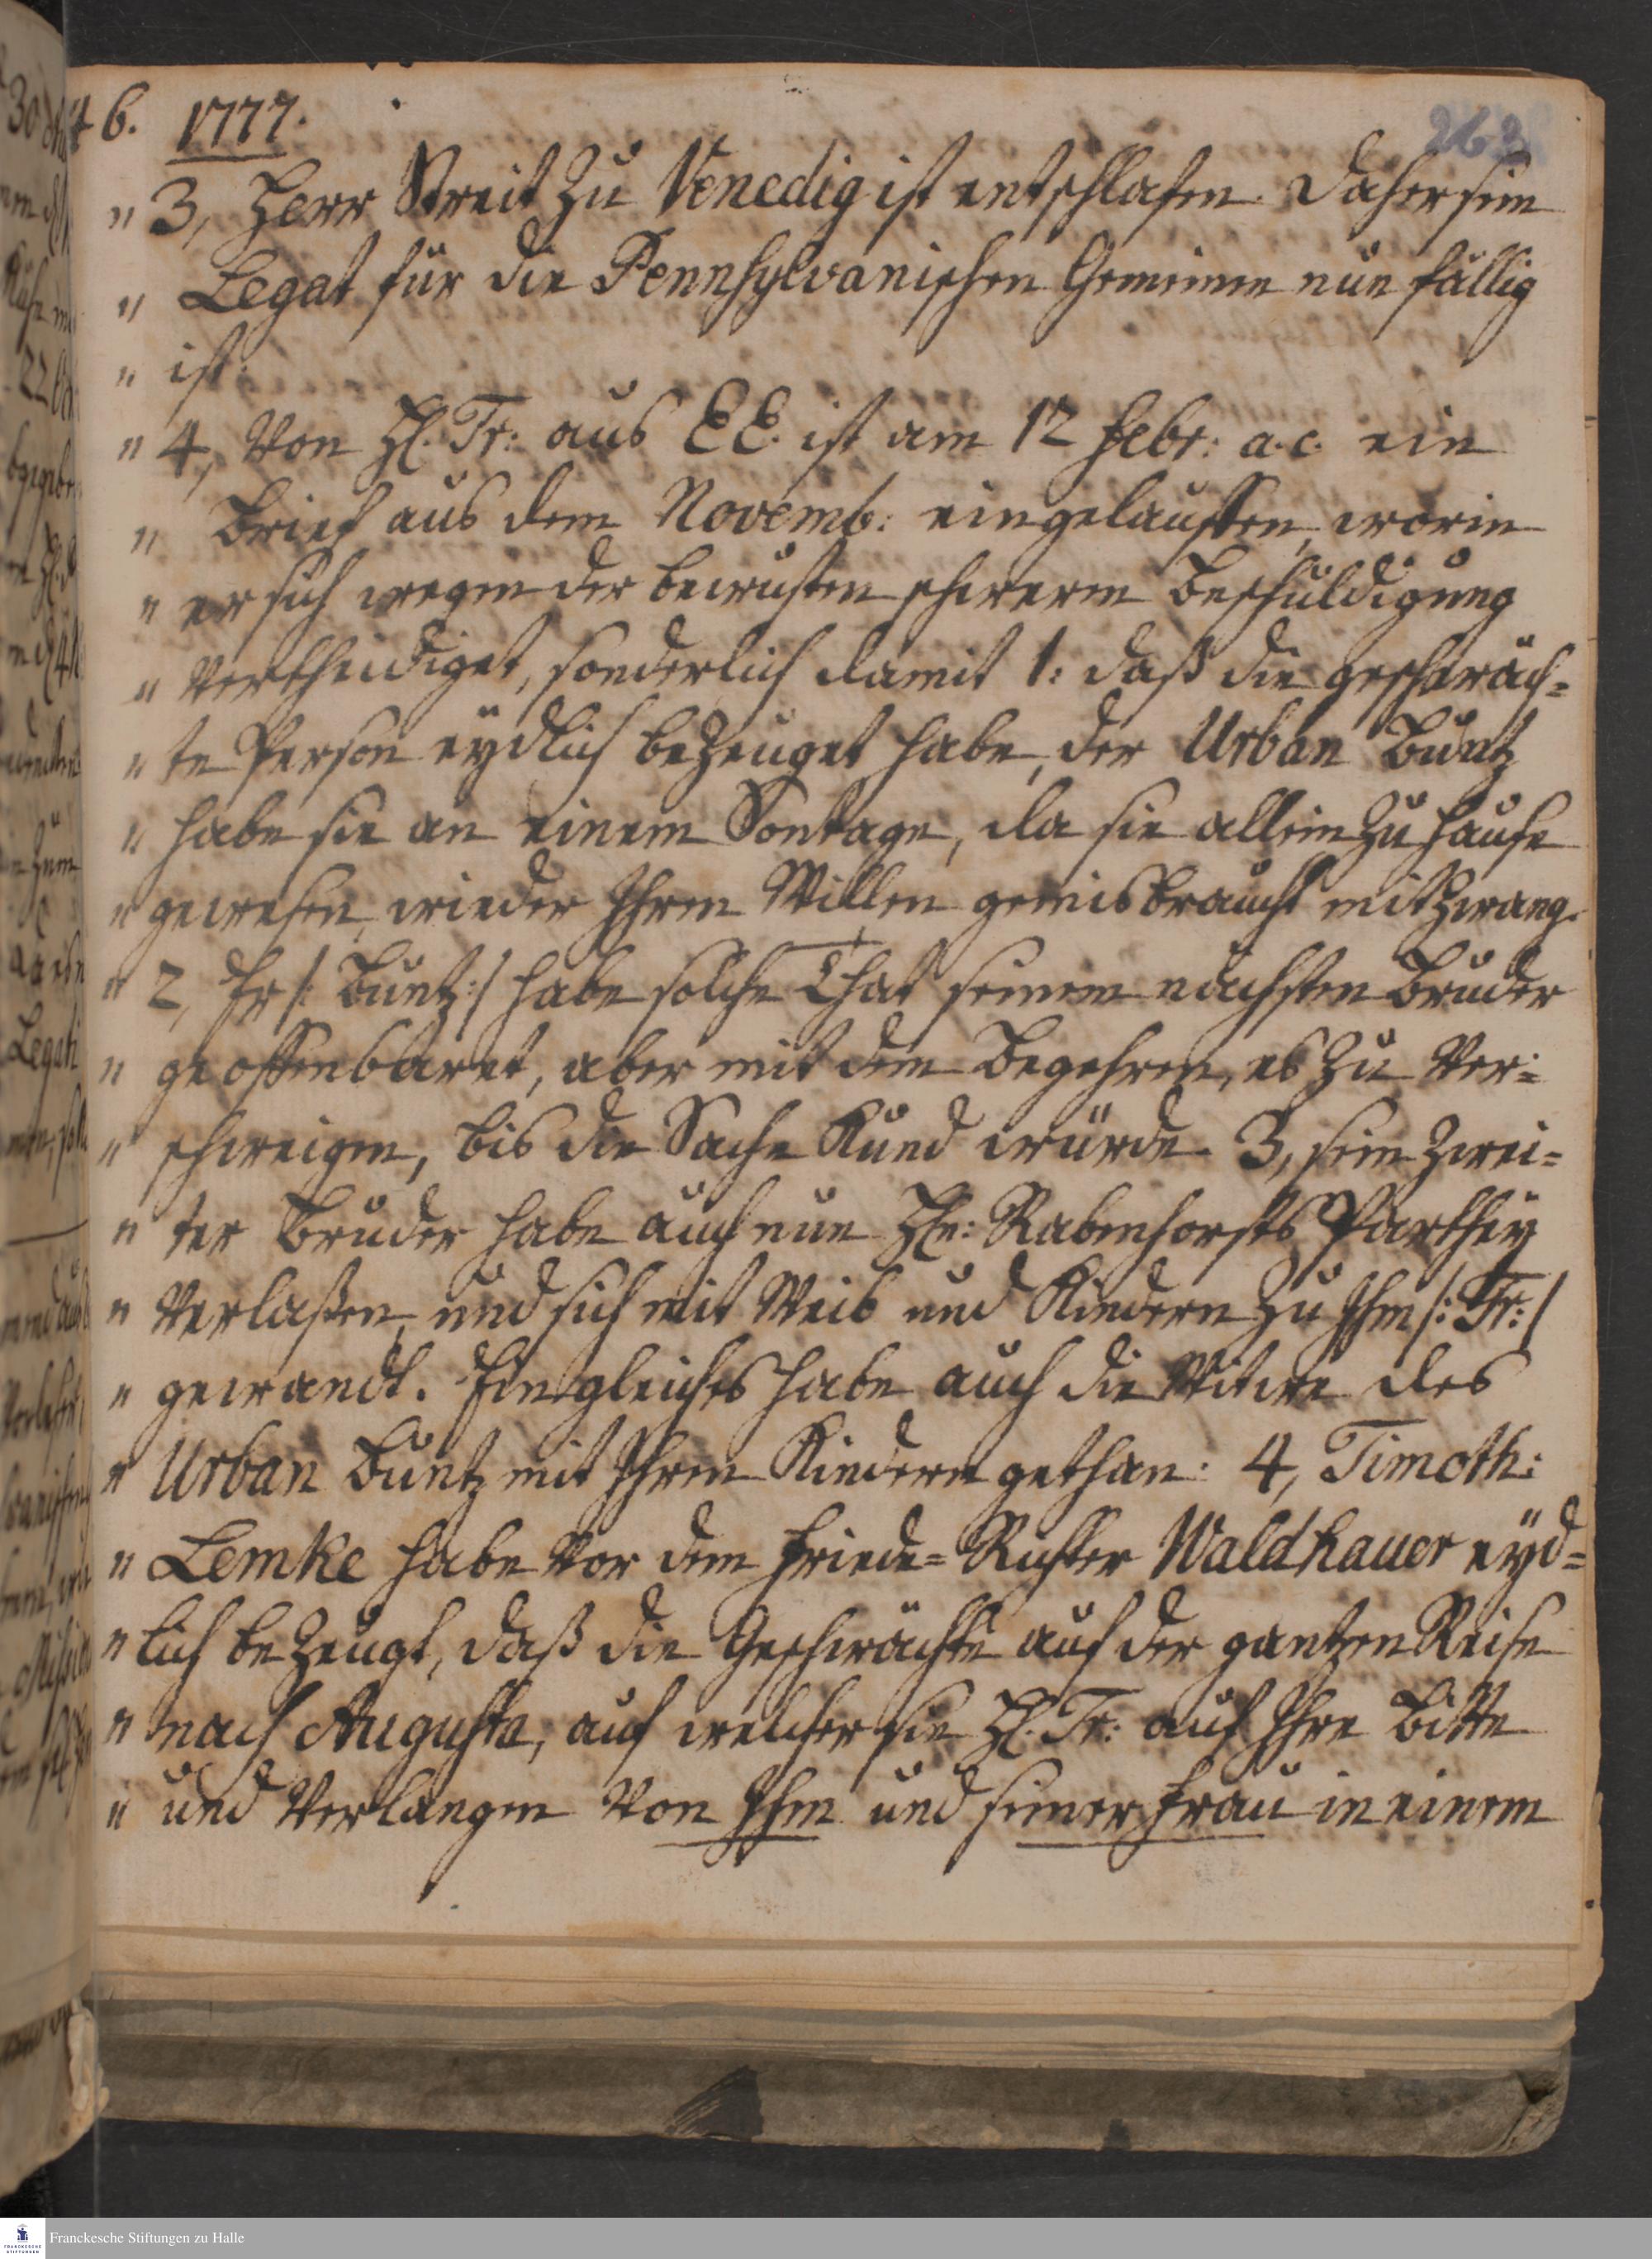 46. 1777.
263
„ 3, Herr Streit zu Venedig ist entschlafen. Daher sein
„ Legat für die Pennsylvanischen Gemeinen nun fällig
„ ist.
„ 4, Von H. Tr: aus EE. ist am 12 Febr: a. c. ein
„ Brief aus dem Novemb: eingelauffen, worin
„ er sich wegen der bewusten schweren Beschuldigung
„ vertheidiget, sonderlich damit 1: daß die geschwäch=
„ te Person eydlich bezeuget habe, der Urban Buntz
„ habe sie an einem Sontage, da sie allein zu Hause
„ gewesen, wieder Ihren Willen gemisbraucht mit Zwang.
„ 2, Er /: Buntz :/ habe solche That seinem nächsten Bruder
„ geoffenbaret, aber mit dem Begehren, es zu ver=
„ schweigen, bis die Sache Kund würde. 3, sein zwei=
„ ter Bruder habe auch nun Hn: Rabenhorsts Parthey
„ verlaßen, und sich mit Weib und Kindern zu Ihm /: Tr: /
„ gewandt. Ein gleiches habe auch die Witwe des
„ Urban Buntz mit Ihren Kindern gethan. 4, Timoth:
„ Lemke habe vor dem Friede=Richter Waldhauer eyd=
„ lich bezeugt, daß die Geschwächte auf der gantzen Reise
„ nach Augusta, auf welcher sie H. Tr: auf Ihre Bitte
„ und Verlangen von Ihm und seiner Frau in einem
Franckesche Stiftungen zu Halle